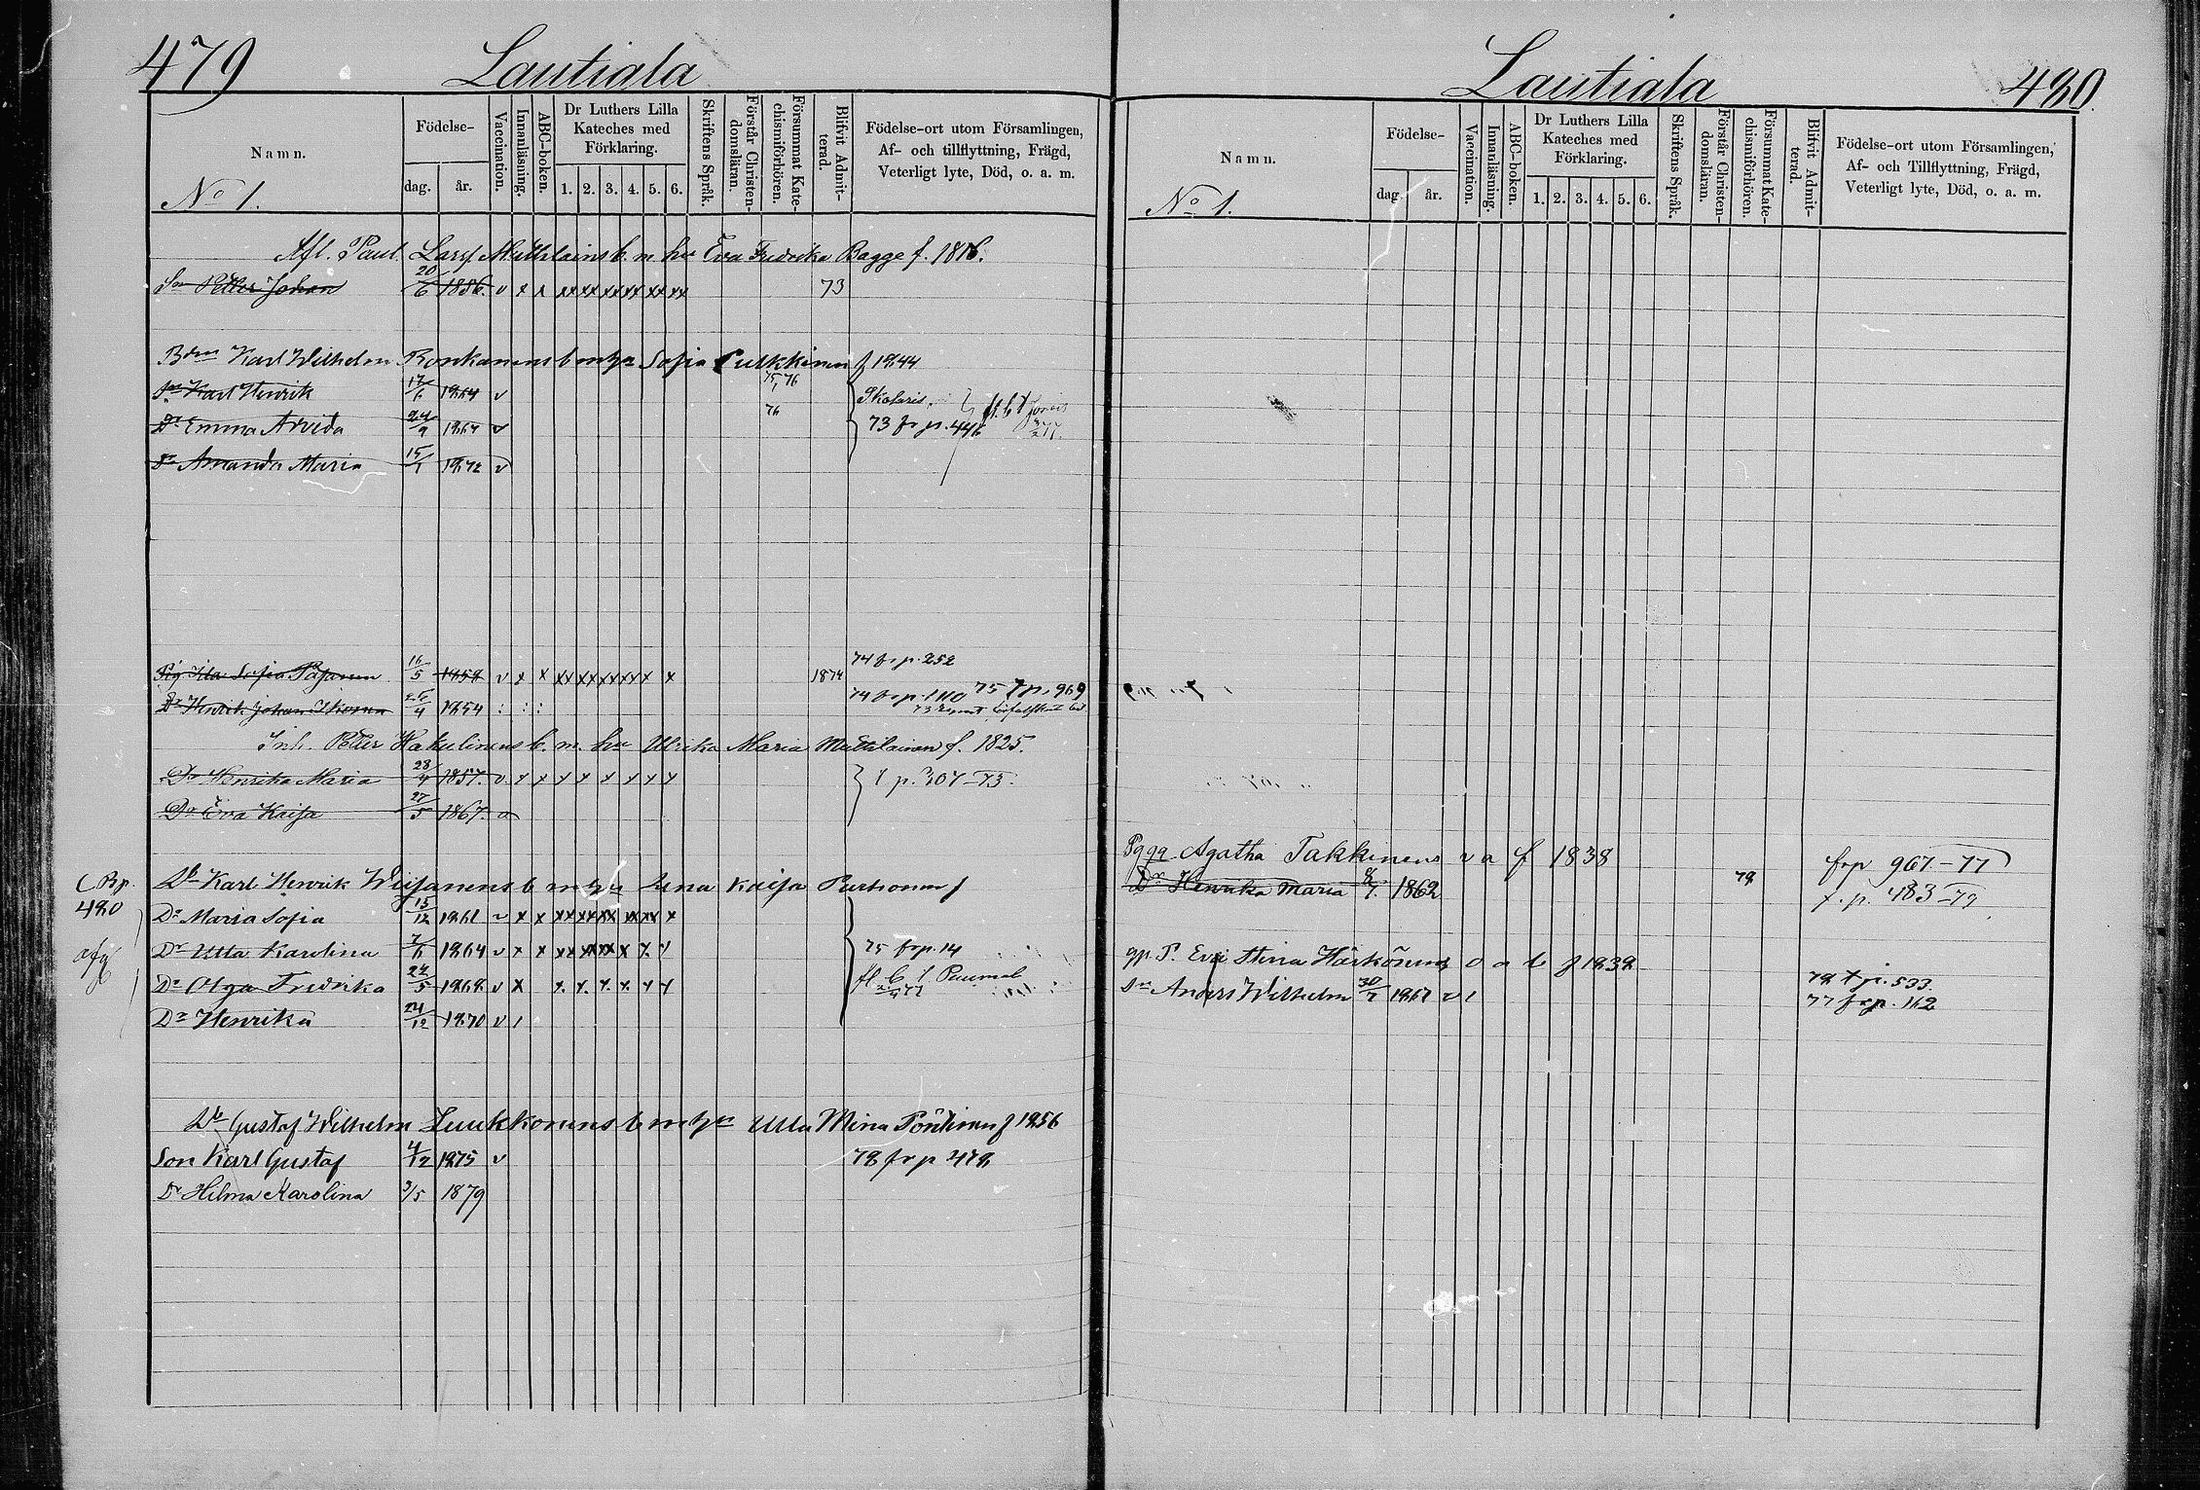 479 Lautiala
Namn. Födelse- dag. år. Vaccination. Innanläsning. ABC-boken. Dr Luthers Lilla Kateches med Förklaring. 1. 2. 3. 4. 5. 6. Skriftens Språk. Förstår Christendomsläran. Försummat Katechismiförhören. Blifvit Admitterad. Födelse-ort utom Församlingen, Af- och tillflyttning, Frägd, Veterligt lyte, Död, o. a. m.
No 1.
Afl. Paul Larss. b. m. hu Eva Fredrika Bagge f. 1816.
Son Petter Johan 20/6 1856. v x x xx xx xx xx xx xx 73
Karl Wilhelm Ronkanens b m hu Sofia Pulkkinen f 1844
Sn Karl Henrik 17/6 1864 v 75, 76
Dr Emma Arvida 24/9 1867 v 76 73 fr p. 446
Dr Amanda Maria 15/1 1872 v
Ida Sofia 16/5 1858 v x x xx xx xx xx x x 1874 74 fr p. 252
Henrik Johan 1854 75 t p. 969
Inh. Petter Hakulinens b. m. hu Ulrika Maria Multilainen f. 1825.
Dr Henrika Maria 28/4 1857. v x x x x x x x x t p. 307-73.
Dr Eva Kaisa 27/5 1867. v
Karl Henrik b m hu Lena Kaisa Purhonen f
480
Dr Maria Sofia 15/12 1861 v x x xx xx xx xx xx x
Dr Ulla Karolina 7/6 1864 v x x 75 fr p. 14
Dr Olga Fredrika 24/5 1868 v x fl. b. t Puumala
Dr Henrika 24/12 1870 v
Gustaf Wilhelm Luukkonens b m hu Ulla Mina Pöntinen f 1856
Son Karl Gustaf 4/12 1875 v 78 fr p 478
Dr Hilma Karolina 3/5 1879
Lautiala 480.
Namn. Födelse- dag. år. Vaccination. Innanläsning. ABC-boken. Dr Luthers Lilla Kateches med Förklaring. 1. 2. 3. 4. 5. 6. Skriftens Språk. Förstår Christendomsläran. Försummat Katechismiförhören. Blifvit Admitterad. Födelse-ort utom Församlingen, Af- och Tillflyttning, Frägd, Veterligt lyte, Död, o. a. m.
No 1.
Agatha Takkinens f 1838 frp 967-77
Dr Henrika Maria 1862 78 t. p. 483-79
Eva Stina Härkönens f 1838 78 t p. 533.
Sn Anders Wilhelm 30/7 1861 77 fr p. 162